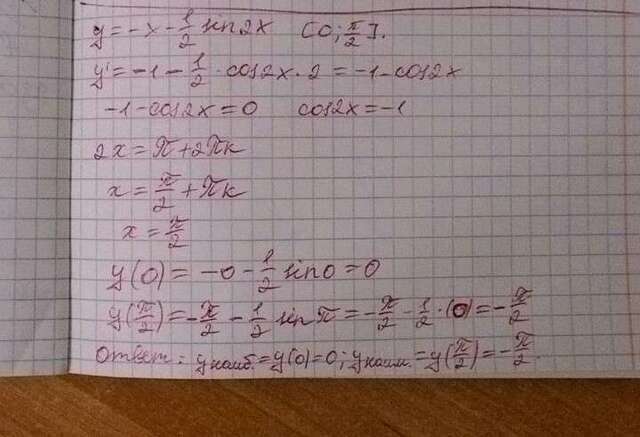 y = -x - 1/2 sin2x [0; π/2].
y' = -1 - 1/2 · cos2x · 2 = -1 - cos2x
-1 - cos2x = 0 cos2x = -1
2x = π + 2πk
x = π/2 + πk
x = π/2
y(0) = -0 - 1/2 sin0 = 0
y(π/2) = -π/2 - 1/2 sin π = -π/2 - 1/2 · (0) = -π/2
Ответ: y наиб. = y(0) = 0; y наим. = y(π/2) = -π/2.